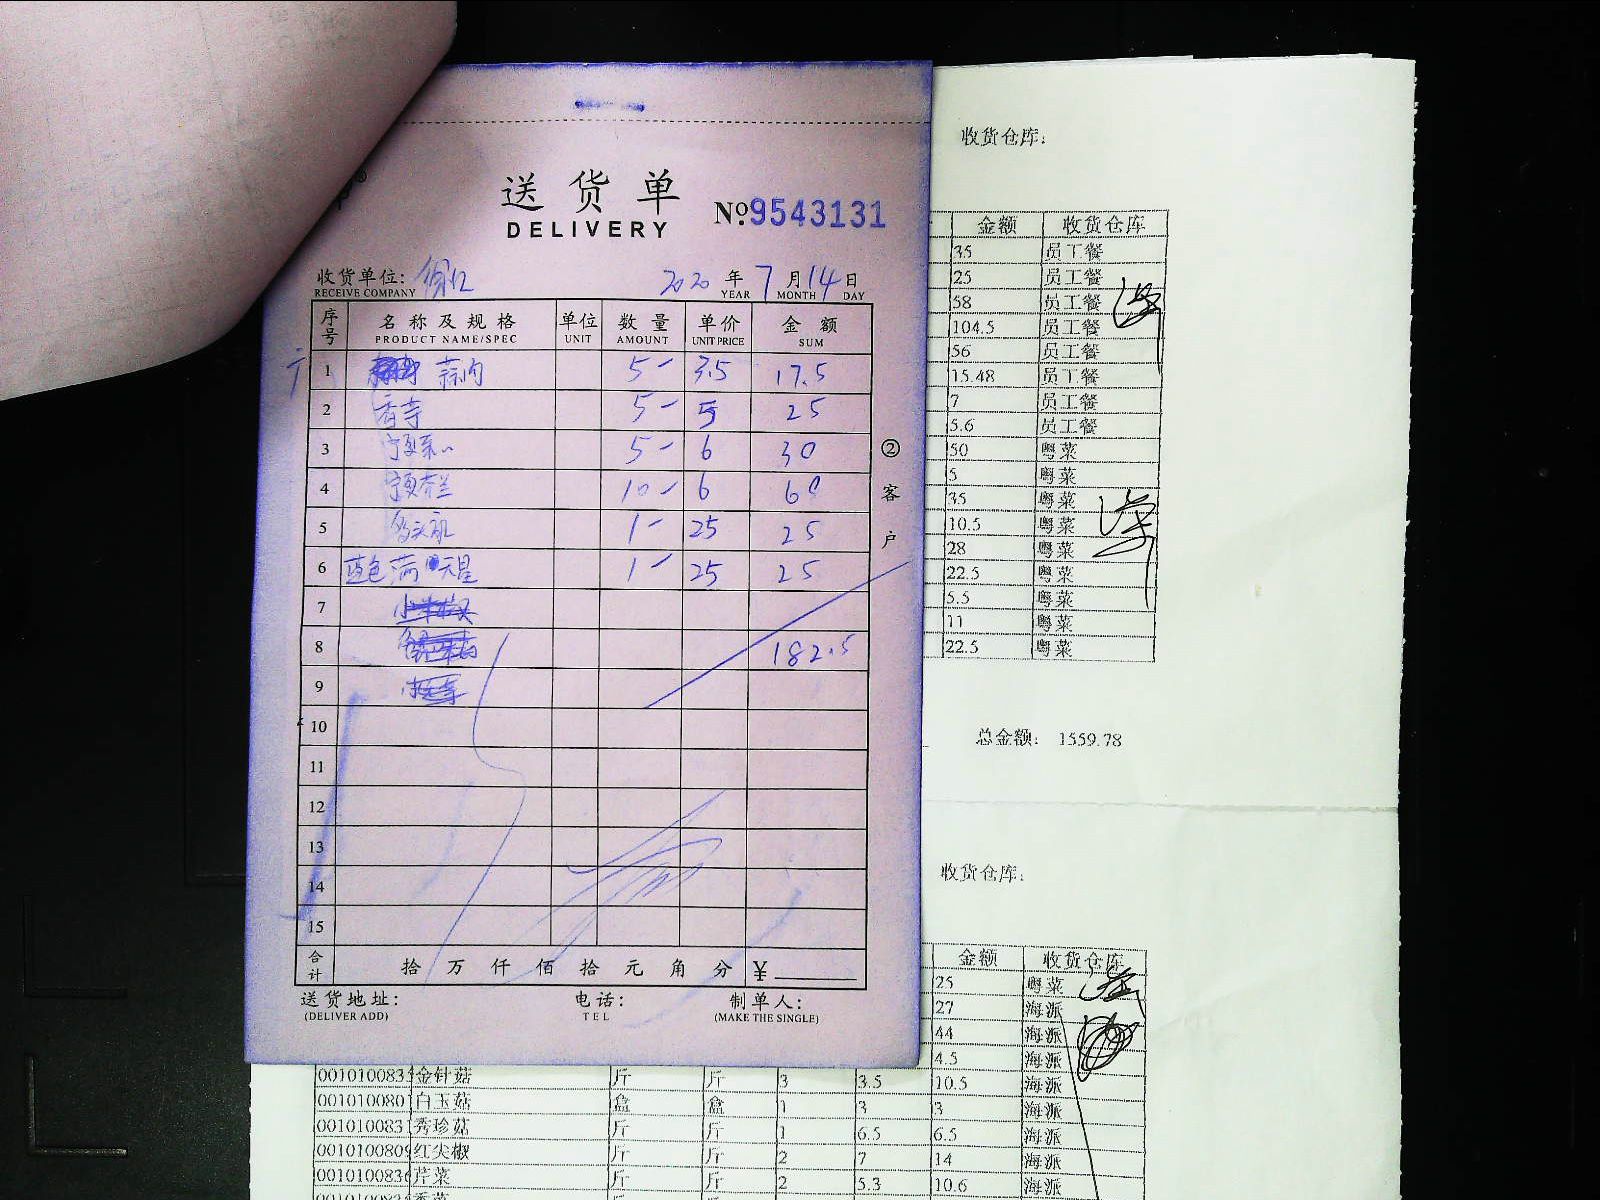 送货单
DELIVERY
No.9543131
收货单位:
RECEIVE COMPANY
2020 年 7 月 14 日
YEAR MONTH DAY
序号 名称及规格 单位 数量 单价 金额
PRODUCT NAME/SPEC UNIT AMOUNT UNIT PRICE SUM
1 5- 3.5 17.5
2 5- 5 25
3 5- 6 30
4 10- 6 60
5 1- 25 25
6 蓝色满天星 1- 25 25
7
8 182.5
9
10
11
12
13
14
15
合计 拾万仟佰拾元角分 ¥
送货地址: 电话: 制单人:
(DELIVER ADD) TEL (MAKE THE SINGLE)
②客户
收货仓库:
金额 收货仓库
35 员工餐
25 员工餐
58 员工餐
104.5 员工餐
56 员工餐
15.48 员工餐
7 员工餐
5.6 员工餐
50 粤菜
5 粤菜
35 粤菜
10.5 粤菜
28 粤菜
22.5 粤菜
5.5 粤菜
11 粤菜
22.5 粤菜
总金额: 1559.78
收货仓库:
金额 收货仓库
25 粤菜
27 海派
44 海派
4.5 海派
金针菇 斤 斤 3 3.5 10.5 海派
白玉菇 盒 盒 1 3 3 海派
秀珍菇 斤 斤 1 6.5 6.5 海派
红尖椒 斤 斤 2 7 14 海派
芹菜 斤 斤 2 5.3 10.6 海派